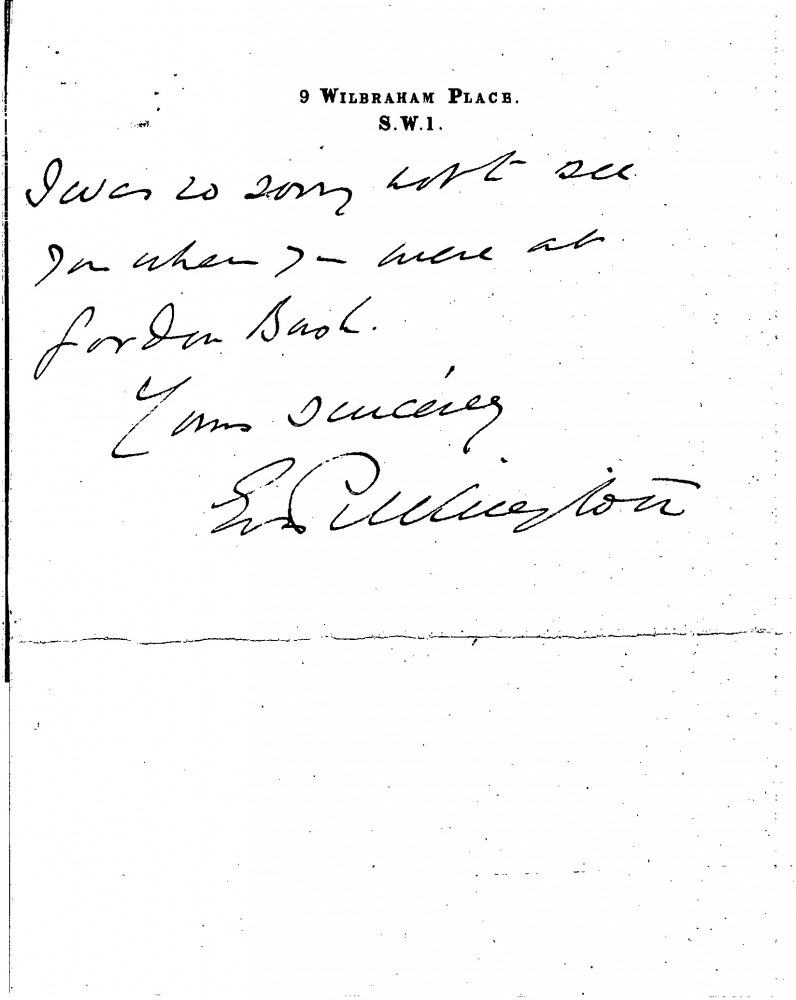 9 WILBRAHAM PLACE.
S.W.1.
I was so sorry not to see
you when you were at
Gordon Bush.
Yours sincerely